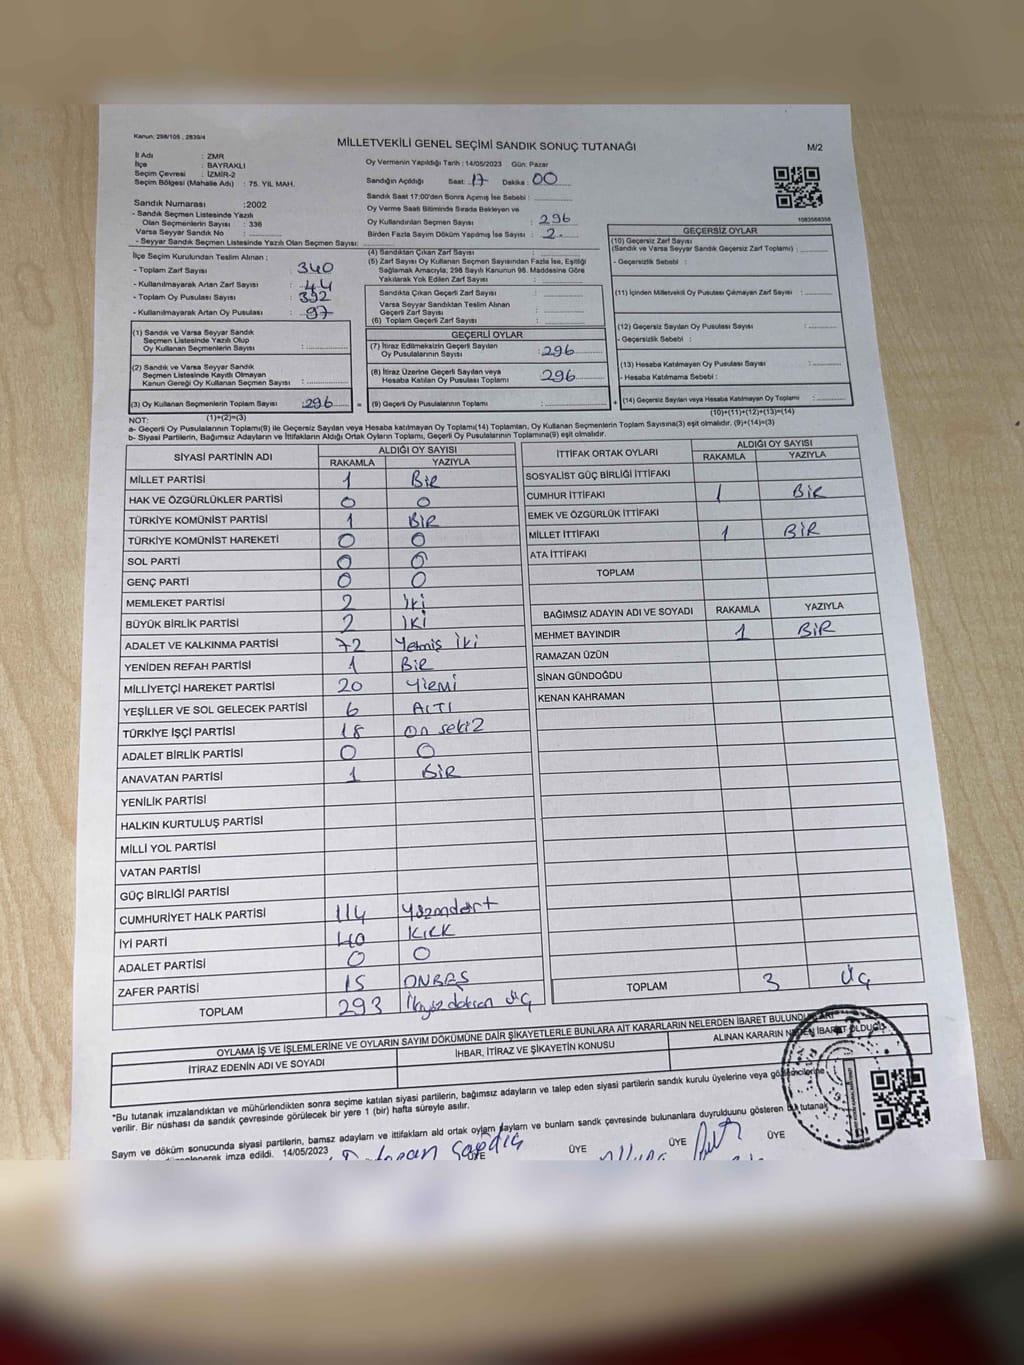 Kanun: 298/105 , 2839/4
MİLLETVEKİLİ GENEL SEÇİMİ SANDIK SONUÇ TUTANAĞI
M/2
İl Adı : ZMR
İlçe : BAYRAKLI
Seçim Çevresi : İZMİR-2
Seçim Bölgesi (Mahalle Adı) : 75. YIL MAH.
Sandık Numarası :2002
- Sandık Seçmen Listesinde Yazılı
Olan Seçmenlerin Sayısı : 336
Varsa Seyyar Sandık No :
- Seyyar Sandık Seçmen Listesinde Yazılı Olan Seçmen Sayısı:
Oy Vermenin Yapıldığı Tarih : 14/05/2023 Gün: Pazar
Sandığın Açıldığı Saat: 17 Dakika : 00
Sandık Saat 17:00'den Sonra Açımış İse Sebebi :
Oy Verme Saati Bitiminde Sırada Bekleyen ve
Oy Kullandırılan Seçmen Sayısı : 296
Birden Fazla Sayım Döküm Yapılmış İse Sayısı : 2.
1083568358
İlçe Seçim Kurulundan Teslim Alınan ;
- Toplam Zarf Sayısı : 340
- Kullanılmayarak Artan Zarf Sayısı : 44
- Toplam Oy Pusulası Sayısı : 392
- Kullanılmayarak Artan Oy Pusulası : 97
(1) Sandık ve Varsa Seyyar Sandık
Seçmen Listesinde Yazılı Olup
Oy Kullanan Seçmenlerin Sayısı :
(2) Sandık ve Varsa Seyyar Sandık
Seçmen Listesinde Kayıtlı Olmayan
Kanun Gereği Oy Kullanan Seçmen Sayısı :
(3) Oy Kullanan Seçmenlerin Toplam Sayısı :296
(1)+(2)=(3)
(4) Sandıktan Çıkan Zarf Sayısı :
(5) Zarf Sayısı Oy Kullanan Seçmen Sayısından Fazla İse, Eşitliği
Sağlamak Amacıyla; 298 Sayılı Kanunun 98. Maddesine Göre
Yakılarak Yok Edilen Zarf Sayısı :
Sandıkta Çıkan Geçerli Zarf Sayısı :
Varsa Seyyar Sandıktan Teslim Alınan
Geçerli Zarf Sayısı :
(6) Toplam Geçerli Zarf Sayısı :
GEÇERLİ OYLAR
(7) İtiraz Edilmeksizin Geçerli Sayılan
Oy Pusulalarının Sayısı :296
(8) İtiraz Üzerine Geçerli Sayılan veya
Hesaba Katılan Oy Pusulası Toplamı 296
= (9) Geçerli Oy Pusulalarının Toplamı :
GEÇERSİZ OYLAR
(10) Geçersiz Zarf Sayısı
(Sandık ve Varsa Seyyar Sandık Geçersiz Zarf Toplamı) :
- Geçersizlik Sebebi :
(11) İçinden Milletvekili Oy Pusulası Çıkmayan Zarf Sayısı :
(12) Geçersiz Sayılan Oy Pusulası Sayısı :
- Geçersizlik Sebebi :
(13) Hesaba Katılmayan Oy Pusulası Sayısı :
- Hesaba Katılmama Sebebi :
+ (14) Geçersiz Sayılan veya Hesaba Katılmayan Oy Toplamı :
(10)+(11)+(12)+(13)=(14)
NOT:
a- Geçerli Oy Pusulalarının Toplamı(9) ile Geçersiz Sayılan veya Hesaba Katılmayan Oy Toplamı(14) Toplamları, Oy Kullanan Seçmenlerin Toplam Sayısına(3) eşit olmalıdır. (9)+(14)=(3)
b- Siyasi Partilerin, Bağımsız Adayların ve İttifakların Aldığı Ortak Oyların Toplamı, Geçerli Oy Pusulalarının Toplamına(9) eşit olmalıdır.
SİYASİ PARTİNİN ADI ALDIĞI OY SAYISI
RAKAMLA YAZIYLA
MİLLET PARTİSİ 1 BİR
HAK VE ÖZGÜRLÜKLER PARTİSİ 0 0
TÜRKİYE KOMÜNİST PARTİSİ 1 BİR
TÜRKİYE KOMÜNİST HAREKETİ 0 0
SOL PARTİ 0 0
GENÇ PARTİ 0 0
MEMLEKET PARTİSİ 2 İki
BÜYÜK BİRLİK PARTİSİ 2 İKİ
ADALET VE KALKINMA PARTİSİ 72 Yetmiş İki
YENİDEN REFAH PARTİSİ 1 BİR
MİLLİYETÇİ HAREKET PARTİSİ 20 Yirmi
YEŞİLLER VE SOL GELECEK PARTİSİ 6 ALTI
TÜRKİYE İŞÇİ PARTİSİ 18 On sekiz
ADALET BİRLİK PARTİSİ 0 0
ANAVATAN PARTİSİ 1 BİR
YENİLİK PARTİSİ
HALKIN KURTULUŞ PARTİSİ
MİLLİ YOL PARTİSİ
VATAN PARTİSİ
GÜÇ BİRLİĞİ PARTİSİ
CUMHURİYET HALK PARTİSİ 114 Yüzondört
İYİ PARTİ 40 KIRK
ADALET PARTİSİ 0 0
ZAFER PARTİSİ 15 ONBEŞ
TOPLAM 293 İkiyüzdoksan üç
İTTİFAK ORTAK OYLARI ALDIĞI OY SAYISI
RAKAMLA YAZIYLA
SOSYALİST GÜÇ BİRLİĞİ İTTİFAKI
CUMHUR İTTİFAKI 1 BİR
EMEK VE ÖZGÜRLÜK İTTİFAKI
MİLLET İTTİFAKI 1 BİR
ATA İTTİFAKI
TOPLAM
BAĞIMSIZ ADAYIN ADI VE SOYADI RAKAMLA YAZIYLA
MEHMET BAYINDIR 1 BİR
RAMAZAN ÜZÜN
SİNAN GÜNDOĞDU
KENAN KAHRAMAN
TOPLAM 3 ÜÇ
OYLAMA İŞ VE İŞLEMLERİNE VE OYLARIN SAYIM DÖKÜMÜNE DAİR ŞİKAYETLERLE BUNLARA AİT KARARLARIN NELERDEN İBARET BULUNDUKLARI
İTİRAZ EDENİN ADI VE SOYADI İHBAR, İTİRAZ VE ŞİKAYETİN KONUSU ALINAN KARARIN NEDEN İBARET OLDUĞU
*Bu tutanak imzalandıktan ve mühürlendikten sonra seçime katılan siyasi partilerin, bağımsız adayların ve talep eden siyasi partilerin sandık kurulu üyelerine veya gözlemcilerine
verilir. Bir nüshası da sandık çevresinde görülecek bir yere 1 (bir) hafta süreyle asılır.
Saym ve döküm sonucunda siyasi partilerin, bamsz adaylarn ve ittifaklarn ald ortak oylarn saylarn ve bunlarn sandk çevresinde bulunanlara duyrulduunu gösteren bu tutanak
imza edildi. 14/05/2023
ÜYE ÜYE ÜYE ÜYE